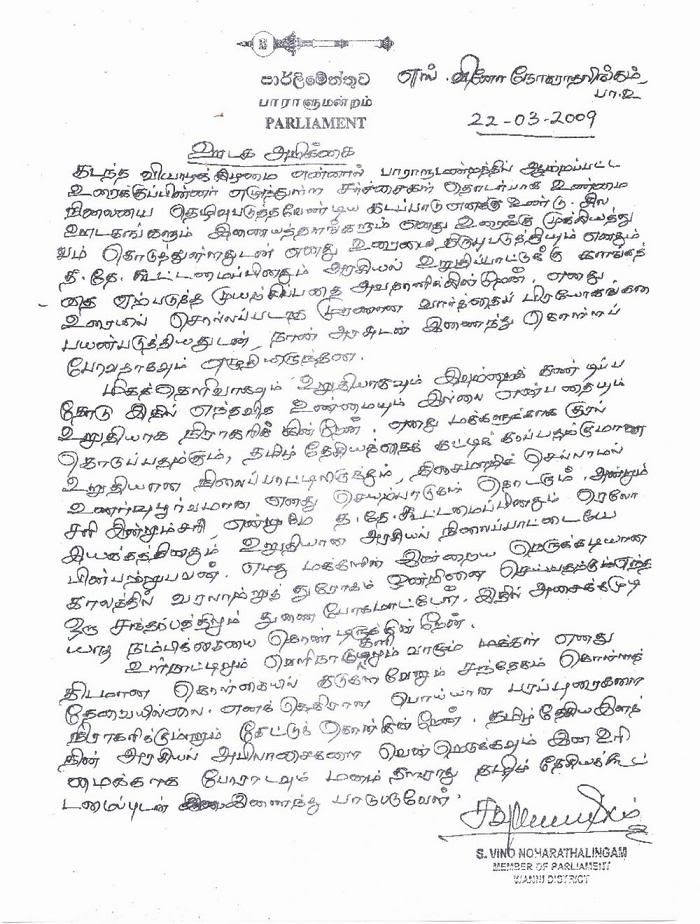 පාර්ලිමේන்තුව
பாராளுமன்றம்
PARLIAMENT
எஸ். வினோ நோகராதலிங்கம்
பா.உ
22-03-2009
ஊடக அறிக்கை
கடந்த வியாழக்கிழமை என்னால் பாராளுமன்றத்தில் ஆற்றப்பட்ட
உரைக்குப்பின்னர் எழுந்துள்ள சர்ச்சைகள் தொடர்பாக உண்மை
நிலையை தெளிவுபடுத்தவேண்டிய கடப்பாடு எனக்கு உண்டு. சில
ஊடகங்களும் இணையத்தளங்களும் எனது உரைக்கு முக்கியத்து
வம் கொடுத்துள்ளதுடன் எனது உரையை திரிபுபடுத்தியும் எனதும்
த.தே. கூட்டமைப்பினதும் அரசியல் உறுதிப்பாட்டுக்கு களங்கத்
தை ஏற்படுத்த முயற்சிப்பதை அவதானிக்கின்றேன். எனது
உரையில் சொல்லப்படாத முரணான வார்த்தைப் பிரயோகங்களை
பயன்படுத்தியதுடன், நான் அரசுடன் இணைந்து கொள்ளப்
போவதாகவும் எழுதியிருந்தன.
மிகத்தெளிவாகவும் உறுதியாகவும் இவற்றைக் கண்டிப்ப
தோடு இதில் எந்தவித உண்மையும் இல்லை என்பதையும்
உறுதியாக நிராகரிக்கின்றேன். எனது மக்களுக்காக குரல்
கொடுப்பதற்கும், தமிழ் தேசியத்தைக் கட்டிக் காப்பதற்குமான
உறுதியான நிலைப்பாட்டிலிருந்தும், திசைமாறிச் செல்லாமல்
உணர்வுபூர்வமான எனது செயற்பாடுகள் தொடரும். அன்றும்
சரி இன்றும்சரி, என்றுமே த.தே.கூட்டமைப்பினதும் ரெலோ
இயக்கத்தினதும் உறுதியான அரசியல் நிலைப்பாட்டையே
பின்பற்றுபவன். எமது மக்களின் இன்றைய நெருக்கடியான
காலத்தில் வரலாற்றுத் துரோகம் ஒன்றினை செய்வதற்கும் எந்த
ஒரு சந்தர்பத்திலும் துணை போகமாட்டேன். இதில் அசைக்கமுடி
யாத நம்பிக்கையை கொண்டிருக்கின்றேன்.
உள்நாட்டிலும் வெளிநாடுகளிலும் வாழும் மக்கள் எனது
திடமான கொள்கையில் எவ்வேளையும் சந்தேகம் கொள்ளத்
தேவையில்லை. எனக்கெதிரான பொய்யான பரப்புரைகளை
நிராகரிக்குமாறும் கேட்டுக் கொள்கின்றேன். தமிழ் தேசிய இனத்
தின் அரசியல் அபிலாசைகளை வென்றெடுக்கவும் இன உரி
மைக்காக போராடவும் மனம் தளராது தமிழ் தேசியக்கூட்
டமைப்புடன் இணைந்து பாடுபடுவேன்.
S. VINO NOHARATHALINGAM
MEMBER OF PARLIAMENT
WANNI DISTRICT